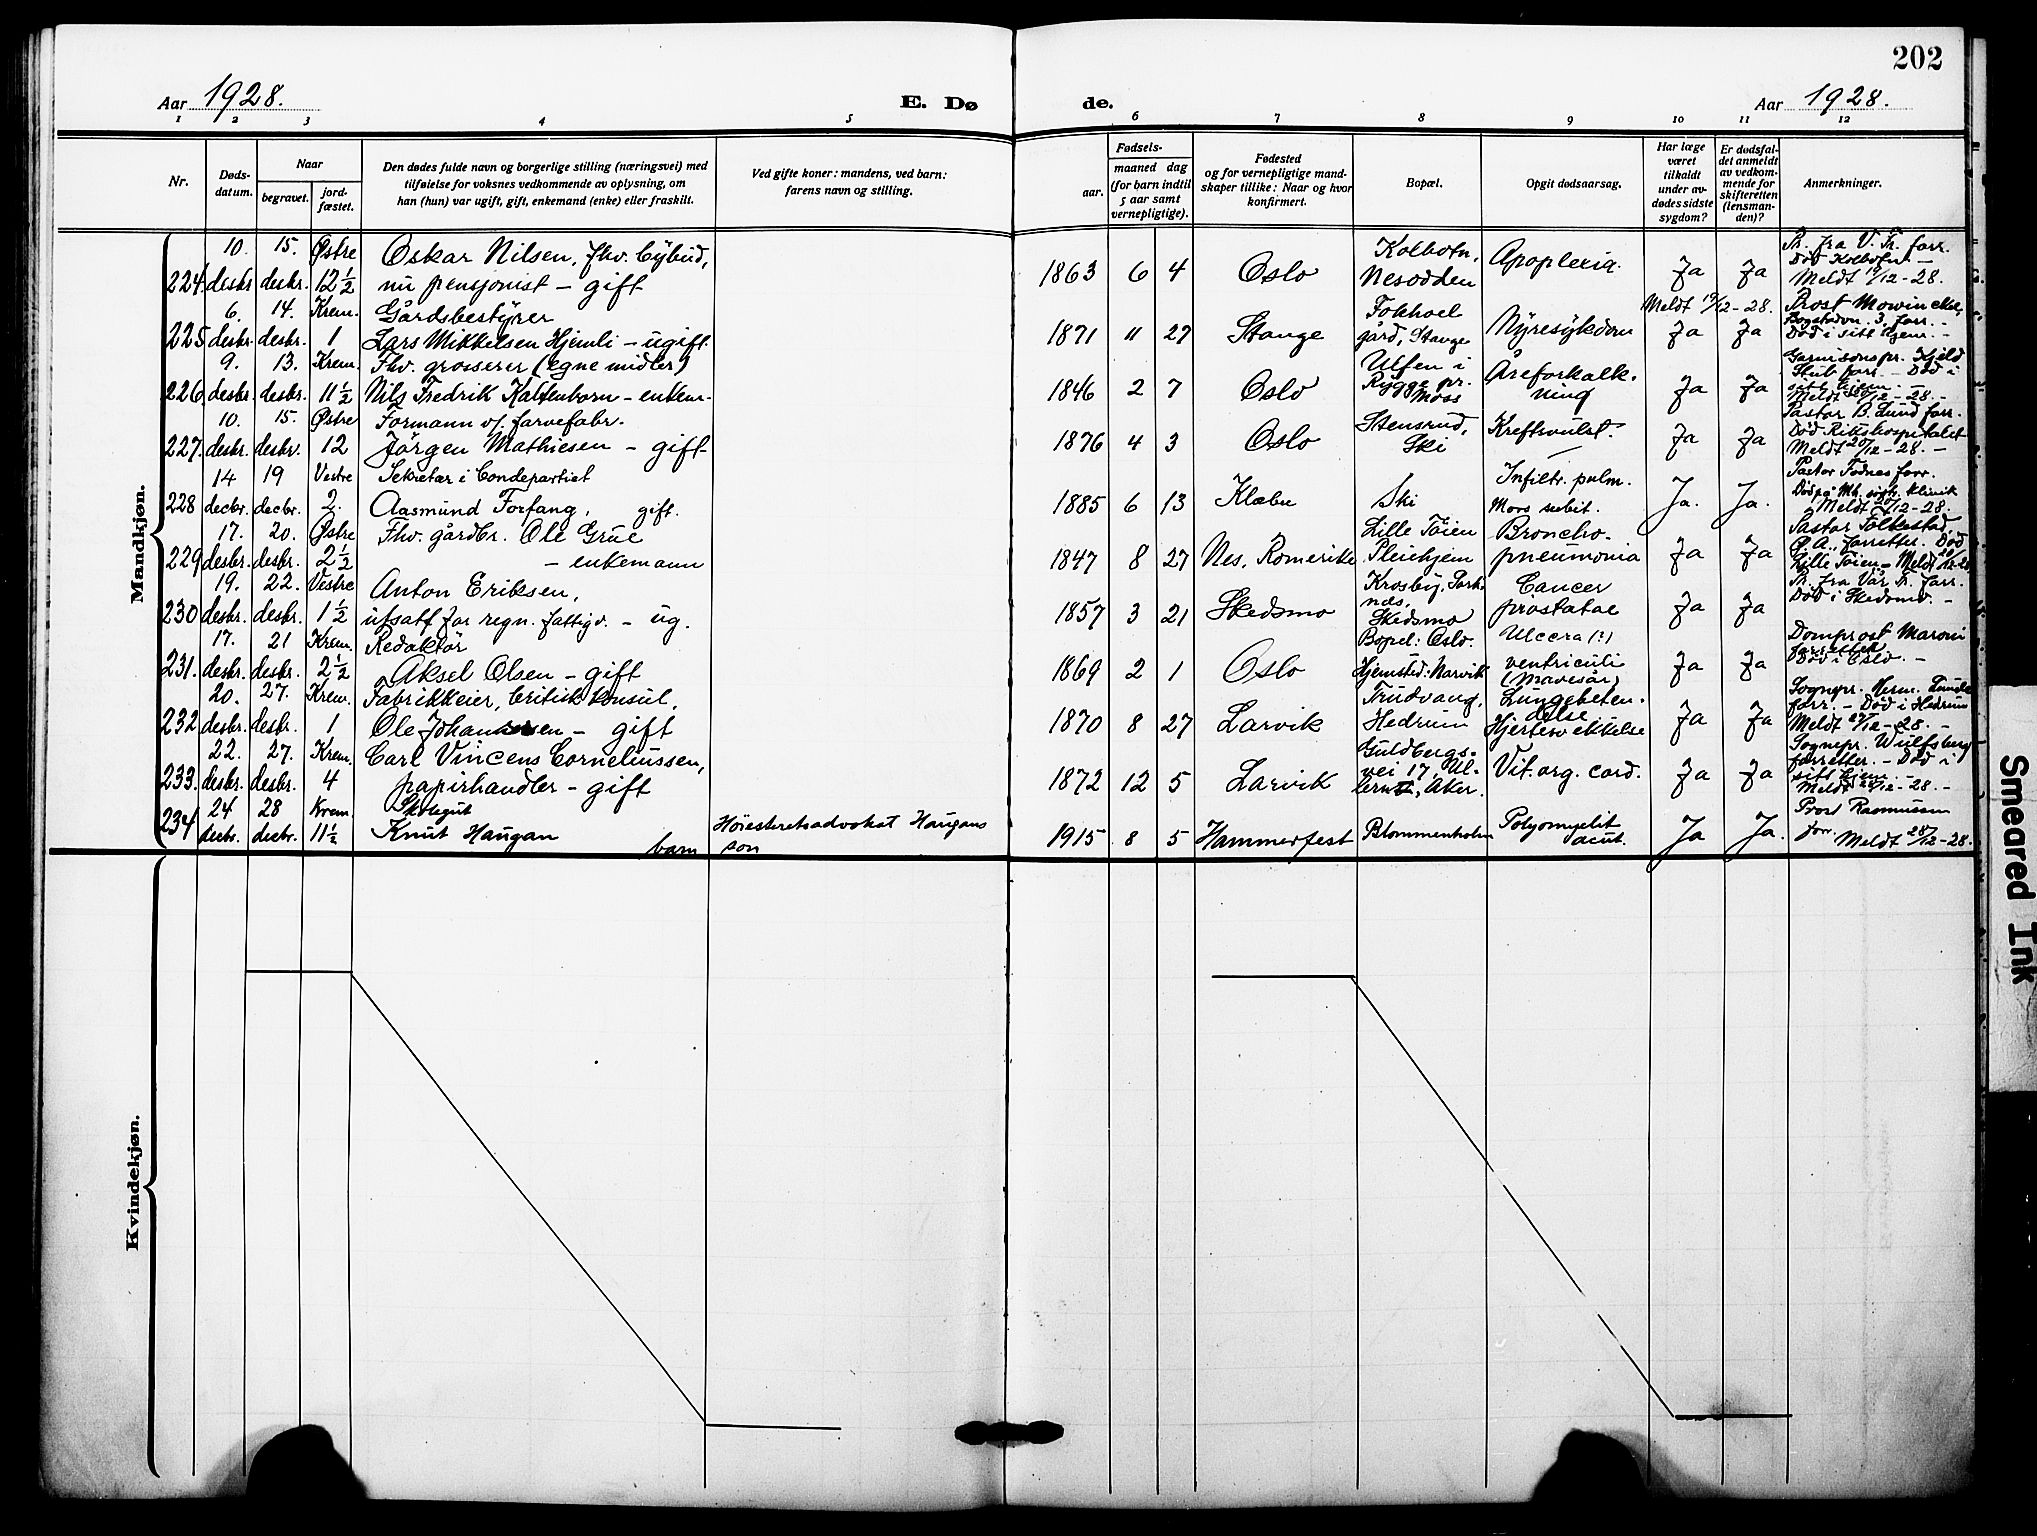 202
Aar 1928.
E. Dø
de.
Aar 1928.
1 2 3 4 5 6 7 8 9 10 11 12
Nr.
Døds-
datum.
Naar
begravet.
jord-
fæstet.
Den dødes fulde navn og borgerlige stilling (næringsvei) med
tilføielse for voksnes vedkommende av oplysning, om
han (hun) var ugift, gift, enkemand (enke) eller fraskilt.
Ved gifte koner: mandens, ved barn:
farens navn og stilling.
Fødsels-
aar.
maaned dag
(for barn indtil
5 aar samt
vernepligtige).
Fødested
og for vernepligtige mand-
skaper tillike: Naar og hvor
konfirmert.
Bopæl.
Opgit dødsaarsag.
Har læge
været
tilkaldt
under av-
dødes sidste
sygdom?
Er dødsfal-
det anmeldt
av vedkom-
mende for
skifteretten
(lensman-
den)?
Anmerkninger.
Mandkjøn.
10. 15. Østre Oskar Nilsen, fhv. bybud, Kolbotn, Apoplexia. Pr. fra V. Fr. forr.
Død Kolbotn -
224. desbr. desbr. 12 1/2 nu pensjonist - gift 1863 6 4 Oslo Nesodden Ja Ja Meldt 19/12-28.
6. 14. Krem. Gårdsbestyrer Fokhoel Meldt 19/12-28. Prost Mowinckel,
225 desbr. desbr. 1 Lars Mikkelsen Hjemli - ugift 1871 11 27 Stange gård, Stange Nyresykdom Ja Ja
Død i sitt hjem. -
9. 13. Krem. Fhv. grosserer (egne midler) Ulfen i Åreforkalk- Garnisonspr. Kjeld
Stub forr. - Død i
226. desbr. desbr. 11 1/2 Nils Fredrik Kaltenborn - enkem. 1846 2 7 Oslo Rygge pr. Moss ning Ja Ja
sitt hjem. -
Meldt 20/12-28. -
10. 15. Østre Formann v/ farvefabr. Stensrud, Kreftsvulst. Pastor B. Lund forr.
Død Rikshospitalet
227. desbr. desbr. 12 Jörgen Mathiesen - gift 1876 4 3 Oslo Ski Ja Ja Meldt 20/12-28. -
14 19 Vestre Sekretær i Landepartiet Infiltr. pulm. Pastor Fodnes forr.
228 decbr. decbr. 2. Aasmund Forfang, gift. 1885 6 13 Klæbu Ski Mors subit. Ja. Ja.
Meldt 20/12-28.
17. 20. Østre Fhv. gårdbr. Ole Grue Lille Tøien Broncho- Pastor Folkestad,
229 desbr. desbr. 2 1/2 - enkemann 1847 8 27 Nes, Romerike Pleiehjem pneumonia Ja Ja
Lille Tøien - Meldt
19. 22. Vestre Anton Eriksen, Krosby, Cancer Pr. fra Vår Fr. forr.
230 desbr. desbr. 1 1/2 utsatt for regn. fattigv. - ug. 1857 3 21 Skedsmo Skedsmo prostatae Ja Ja Død i Skedsmo. -
17. 21 Krem. Redaktör Bopel: Oslo. Ulcera (?) Domprost Maroni
forrettet
231. desbr. desbr. 2 1/2 Aksel Olsen - gift 1869 2 1 Oslo Hjemsted: Narvik ventriculi (Mavesår) Ja Ja Död i Oslo. -
20. 27. Krem. Fabrikkeier, britisk konsul, Trudvang, Lungebeten- Sognepr. Herm. Lunde
forr. - Död i Hedrum
232 desbr. desbr. 1 Ole Johannsen - gift 1870 8 27 Larvik Hedrum delse Hjertesvekkelse Ja Ja Meldt 27/12-28. -
22. 27. Krem. Carl Vincens Corneliussen, Guldbergs- Sognepr. Wulfsberg
forretter. - Død i
233. desbr. desbr. 4 papirhandler - gift 1872 12 5 Larvik vei 17, Ul-lern, Aker. Vit. org. cord. Ja Ja
sitt hjem. -
Meldt 28/12-28. -
24 28 Krem. Skolegut Høiesteretsadvokat Haugans Prost Rasmussen
234 decbr. decbr. 11 1/2 Knut Haugan barn son 1915 8 5 Hammerfest Blommenholm Polyomyelit acut. Ja Ja. forr. Meldt 28/12-28.
Kvindekjøn.
Smeared Ink